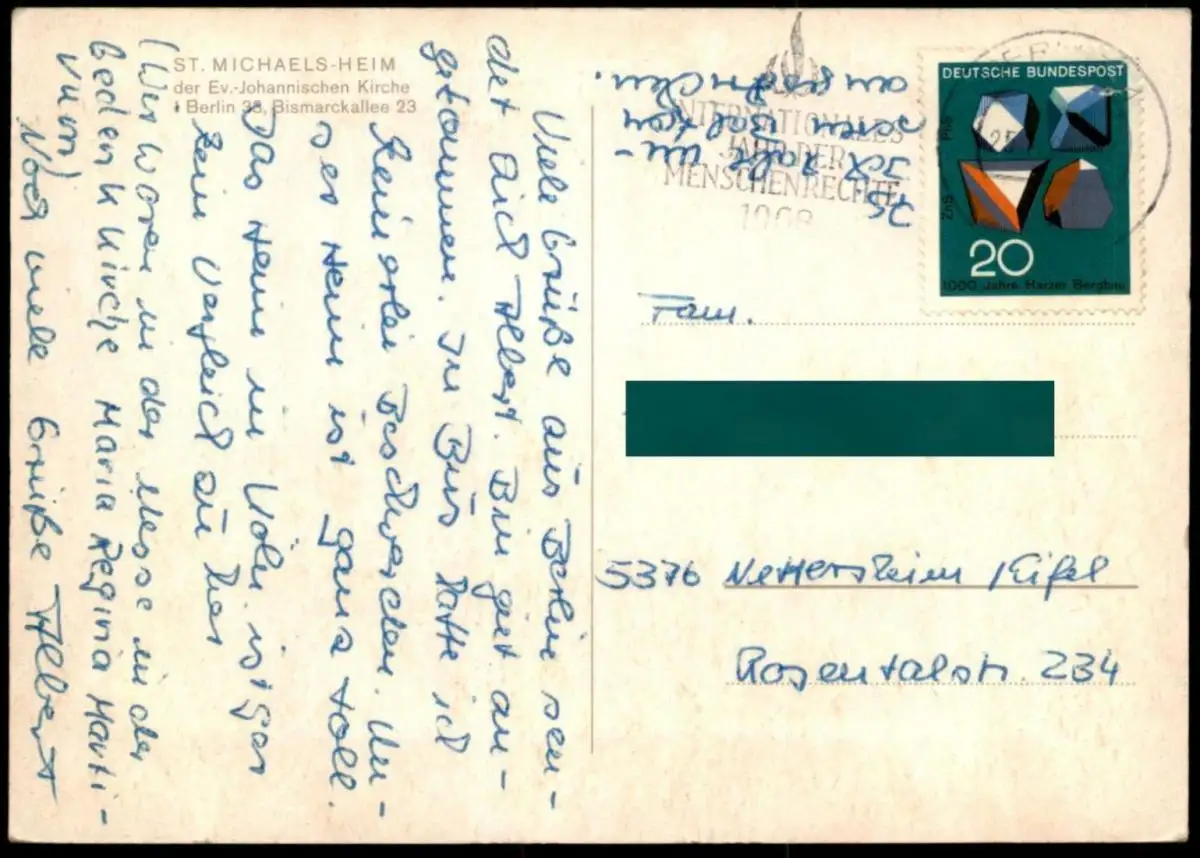 ST. MICHAELS-HEIM
der Ev.-Johannischen Kirche
1 Berlin 33, Bismarckallee 23
Viele Grüße aus Berlin sen-
det Euch Albert. Bin gut an-
gekommen. Im Bus hatte ich
keinerlei Beschwerden. Un-
ser Heim ist ganz toll.
Das Heim in Köln ist gar
kein Vergleich zu hier
(Wir waren in der Messe in der
Gedenk Kirche Maria Regina Marti-
rum)
Noch viele Grüße Albert
PS
Ich un-
INTERNATIONALES
JAHR DER
MENSCHENRECHTE
1968
DEUTSCHE BUNDESPOST
PbS
ZnS
20
1000 Jahre Harzer Bergbau
Fam.
5376 Nettersheim /Eifel
Rosentalstr. 234